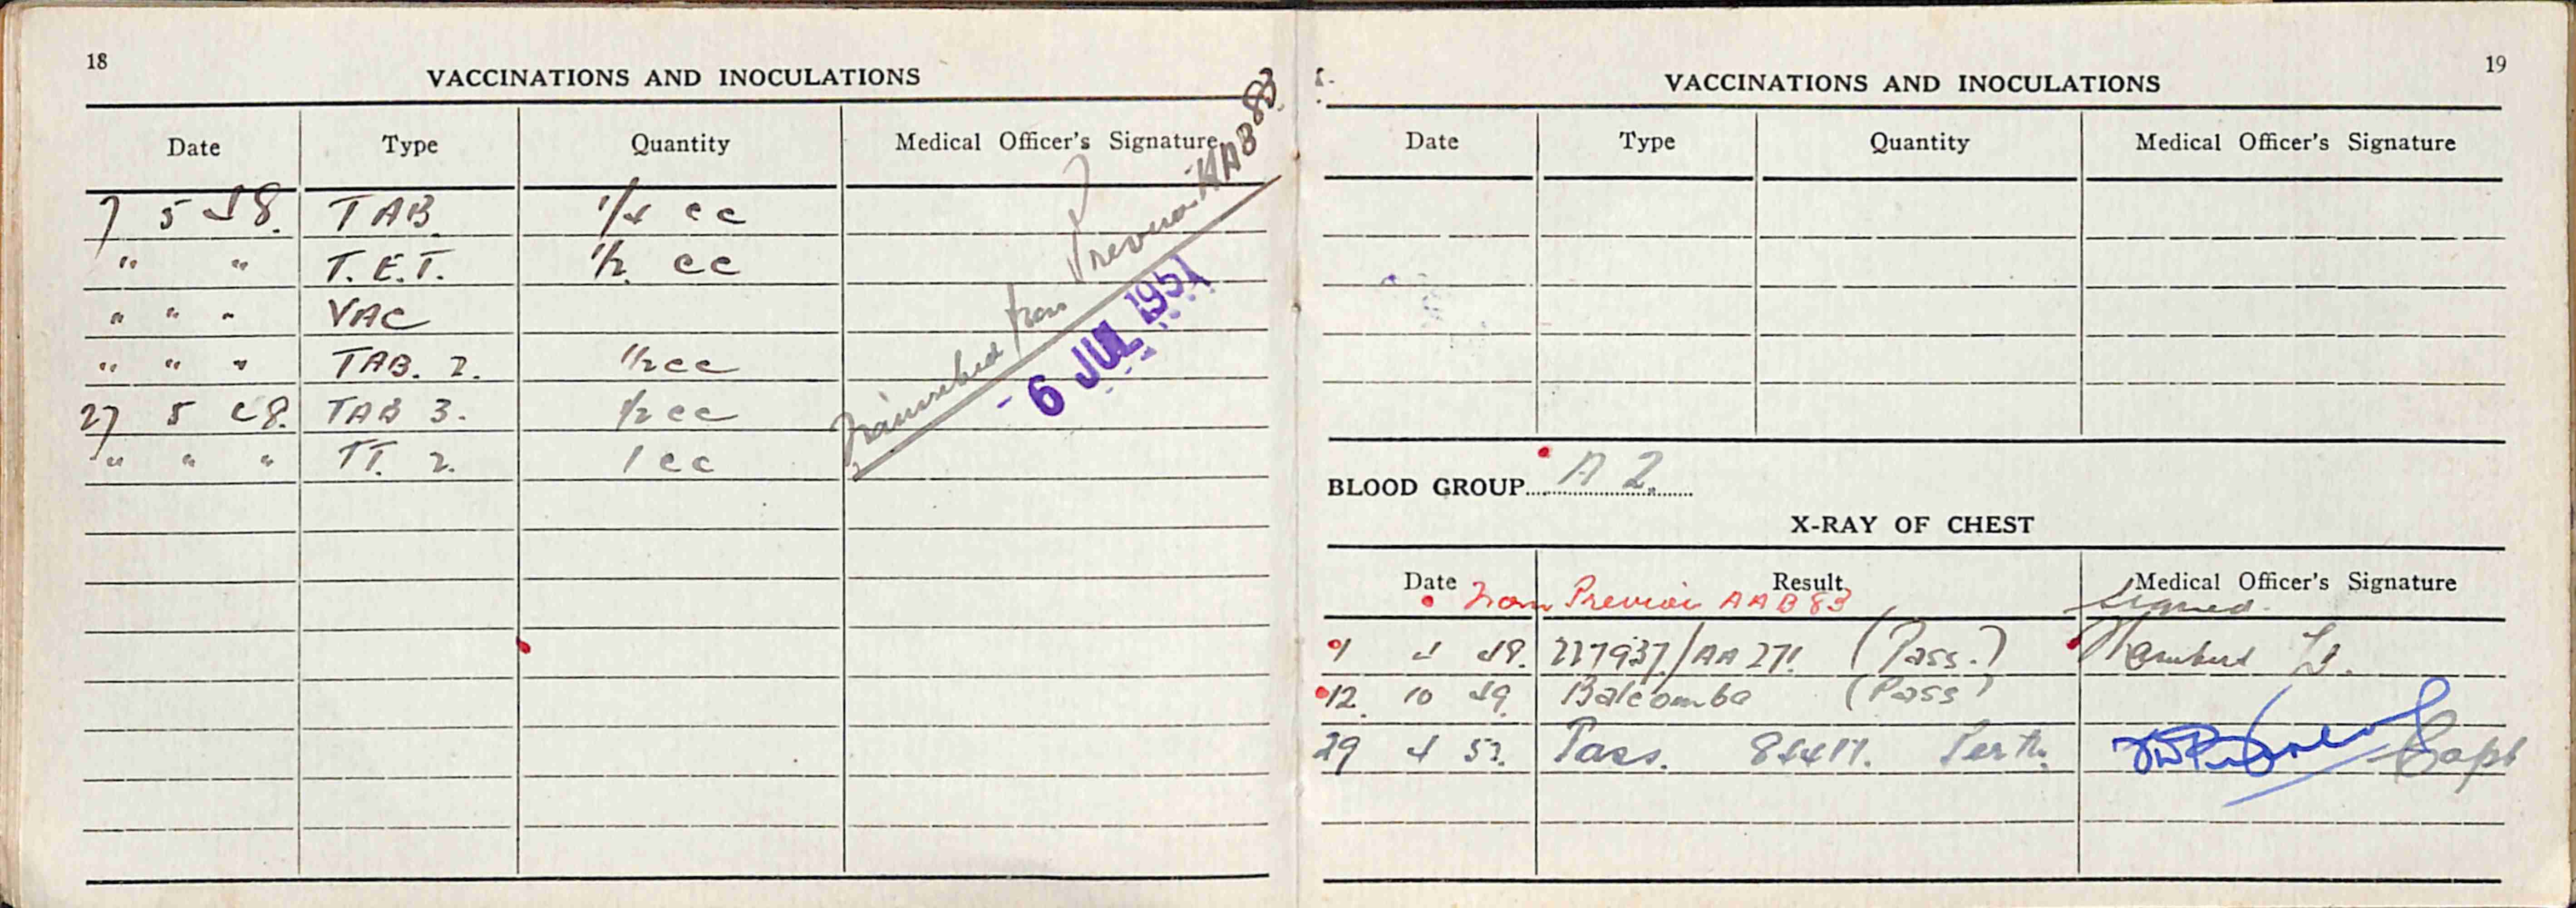 18
VACCINATIONS AND INOCULATIONS
Date Type Quantity Medical Officer's Signature
7 5 48. TAB. 1/4 cc
" " T.E.T. 1/2 cc
" " " VAC
" " " TAB. 2. 1/2 cc
27 5 48. TAB 3. 1/2 cc
" " " TT. 2. 1 cc
from Previous AAB 83
- 6 JUL 1951
19
VACCINATIONS AND INOCULATIONS
Date Type Quantity Medical Officer's Signature
BLOOD GROUP A 2.
X-RAY OF CHEST
Date Result Medical Officer's Signature
From Previou AAB 83 Signed.
4 49. 227937/AA 271. (Pass.) Lt.
12. 10 49. Balcombe (Pass)
29 4 52. Pass. Perth. Capt